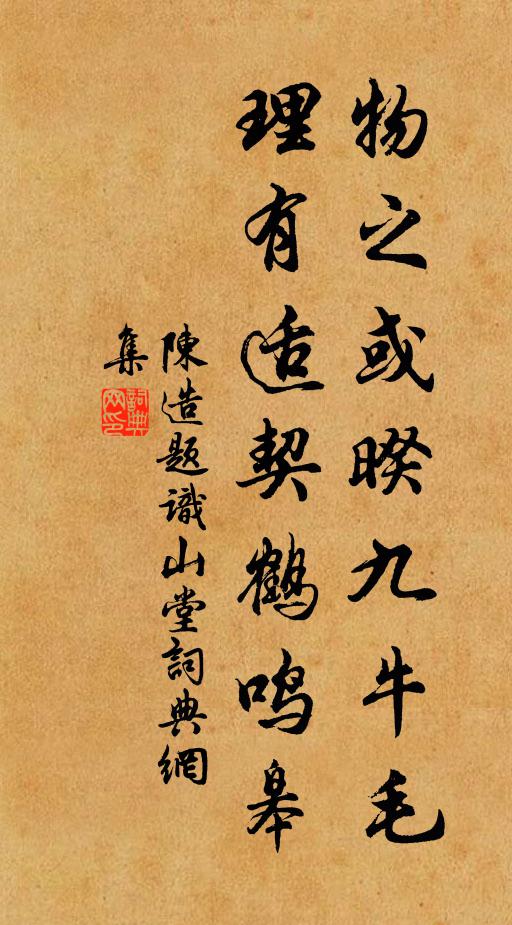 物之或暌九牛毛
理有适契鹤鸣皋
陳造题識山堂詞典網
集
詞典网印